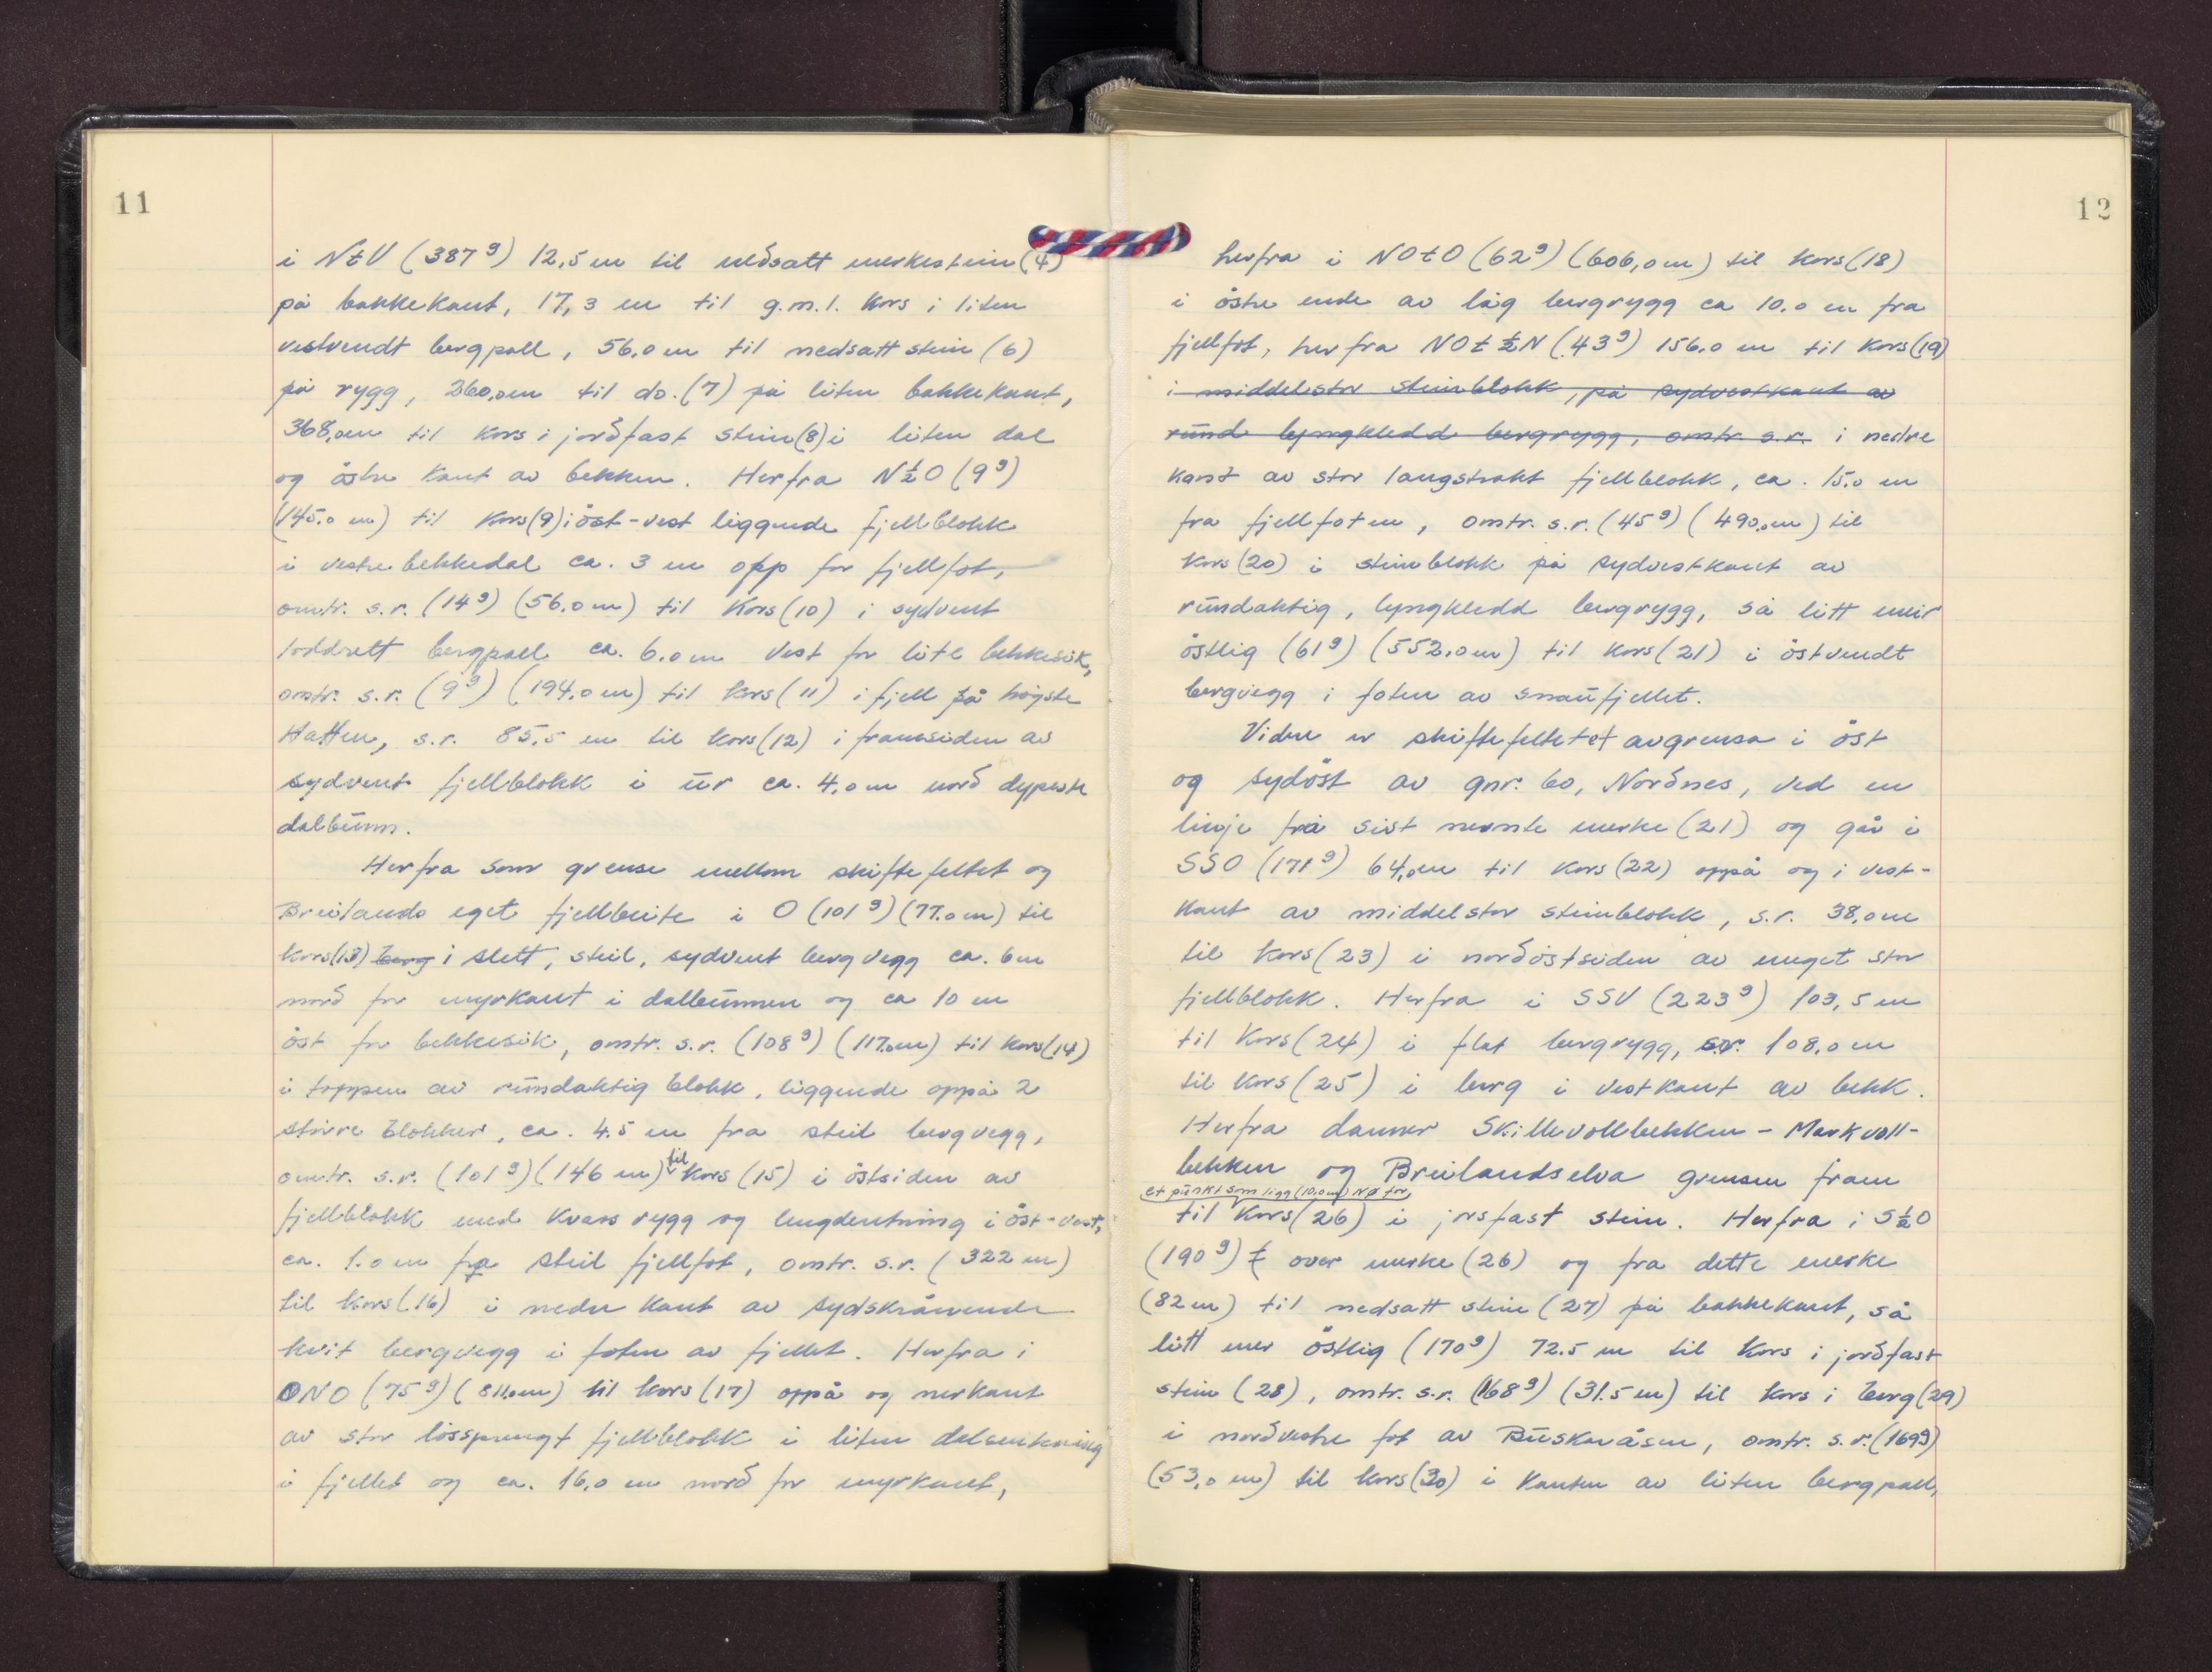 11
i NtV (387g) 12,5 m til nedsatt merkestein (4)
på bakkekant, 17,3 m til g.m.l. kors i liten
vestvendt bergpall, 56,0 m til nedsatt stein (6)
på rygg, 260,0 m til do. (7) på liten bakkekant,
368,0 m til kors i jordfast stein (8) i liten dal
og östre kant av bekken. Herfra N½O (9g)
(145,0 m) til kors (9) i öst-vest liggende fjellblokk
i vestre bekkedal ca. 3 m opp for fjellfot,
omtr. s.r. (14g) (56,0 m) til kors (10) i sydvent
loddrett bergpall ca. 6,0 m vest for lite bekkesik,
omtr. s.r. (9g) (194,0 m) til kors (11) i fjell på högste
Hatten, s.r. 85,5 m til kors (12) i framsiden av
sydvent fjellblokk i ur ca. 4,0 m nord dypeste
dalbunn.
Herfra som grense mellom skiftefeltet og
Breilands eget fjellbeite i O (101g) (77,0 m) til
kors (13) berg i slett, steil, sydvent bergvegg ca. 6 m
nord for myrkant i dalbunnen og ca 10 m
öst for bekkesik, omtr. s.r. (108g) (117,0 m) til kors (14)
i toppen av rundaktig blokk, liggende oppå 2
större blokker, ca. 4.5 m fra steil bergvegg,
omtr. s.r. (101g) (146 m) til kors (15) i östsiden av
fjellblokk med kvass rygg og lengderetning i öst-vest,
ca. 1.0 m fra steil fjellfot, omtr. s.r. (322 m)
til kors (16) i nedre kant av sydskrånende
kvit bergvegg i foten av fjellet. Herfra i
ONO (75g) (811,0 m) til kors (17) oppå og nerkant
av stor lössprengt fjellblokk i liten
i fjellet og ca. 16,0 m nord for myrkant,
12
herfra i NOtO (62g) (606,0 m) til kors (18)
i östre ende av låg bergrygg ca 10.0 m fra
fjellfot, herfra NOt½N (43g) 156.0 m til kors (19)
i middelstor steinblokk, på sydvestkant av
rund lyngkledd bergrygg, omtr. s.r. i nedre
kant av stor langstrakt fjellblokk, ca. 15.0 m
fra fjellfoten, omtr. s.r. (45g) (490,0 m) til
kors (20) i steinblokk på sydvestkant av
rundaktig, lyngkledd bergrygg, så litt meir
östlig (61g) (552,0 m) til kors (21) i östvendt
bergvegg i foten av snaufjellet.
Videre er skiftefeltetet avgrensa i öst
og sydöst av gnr. 60, Nordnes, ved en
linje frå sist nevnte merke (21) og går i
SSO (171g) 64,0 m til kors (22) oppå og i vest-
kant av middelstor steinblokk, s.r. 38,0 m
til kors (23) i nordöstsiden av meget stor
fjellblokk. Herfra i SSV (223g) 103,5 m
til kors (24) i flat bergrygg, s.r. 108,0 m
til kors (25) i berg i vestkant av bekk.
Herfra danner Skillevollbekken - Markvoll-
bekken og Breilandselva grensen fram
et punkt som ligg (10,0 m) NØ for
til kors (26) i jorfast stein. Herfra i S½O
(190g) t over merke (26) og fra dette merke
(82 m) til nedsatt stein (27) på bakkekant, så
litt mer östlig (170g) 72.5 m til kors i jordfast
stein (28), omtr. s.r. (168g) (31.5 m) til kors i berg (29)
i nordvestre fot av Buskaråsen, omtr. s.r. (169g)
(53,0 m) til kors (30) i kanten av liten bergpall,